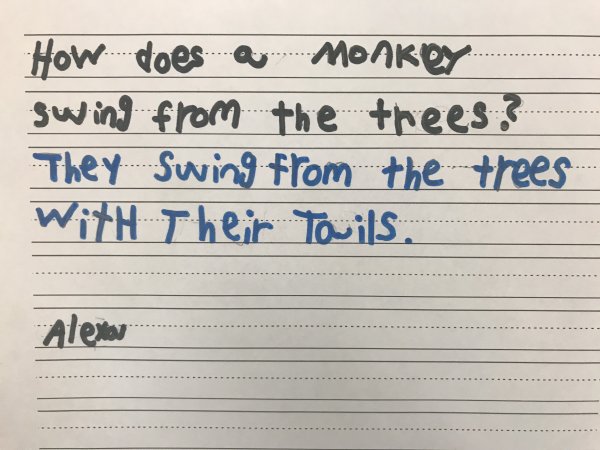 How does a Monkey
swing from the trees?
They swing from the trees
WitH Their Tails.
Alexa